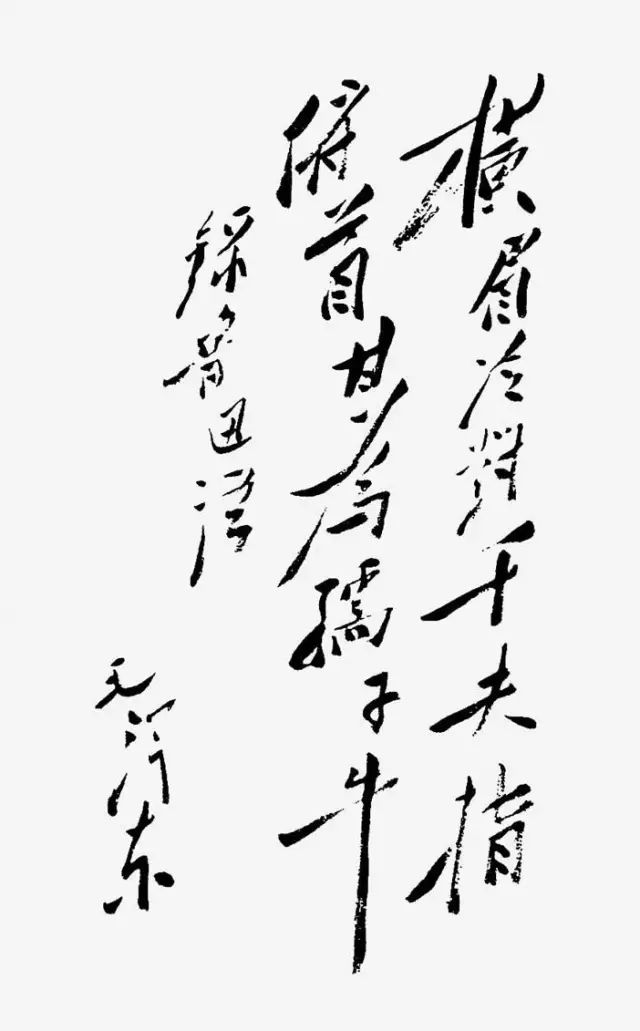 橫眉冷對千夫指
俯首甘為孺子牛
錄魯迅語
毛澤东